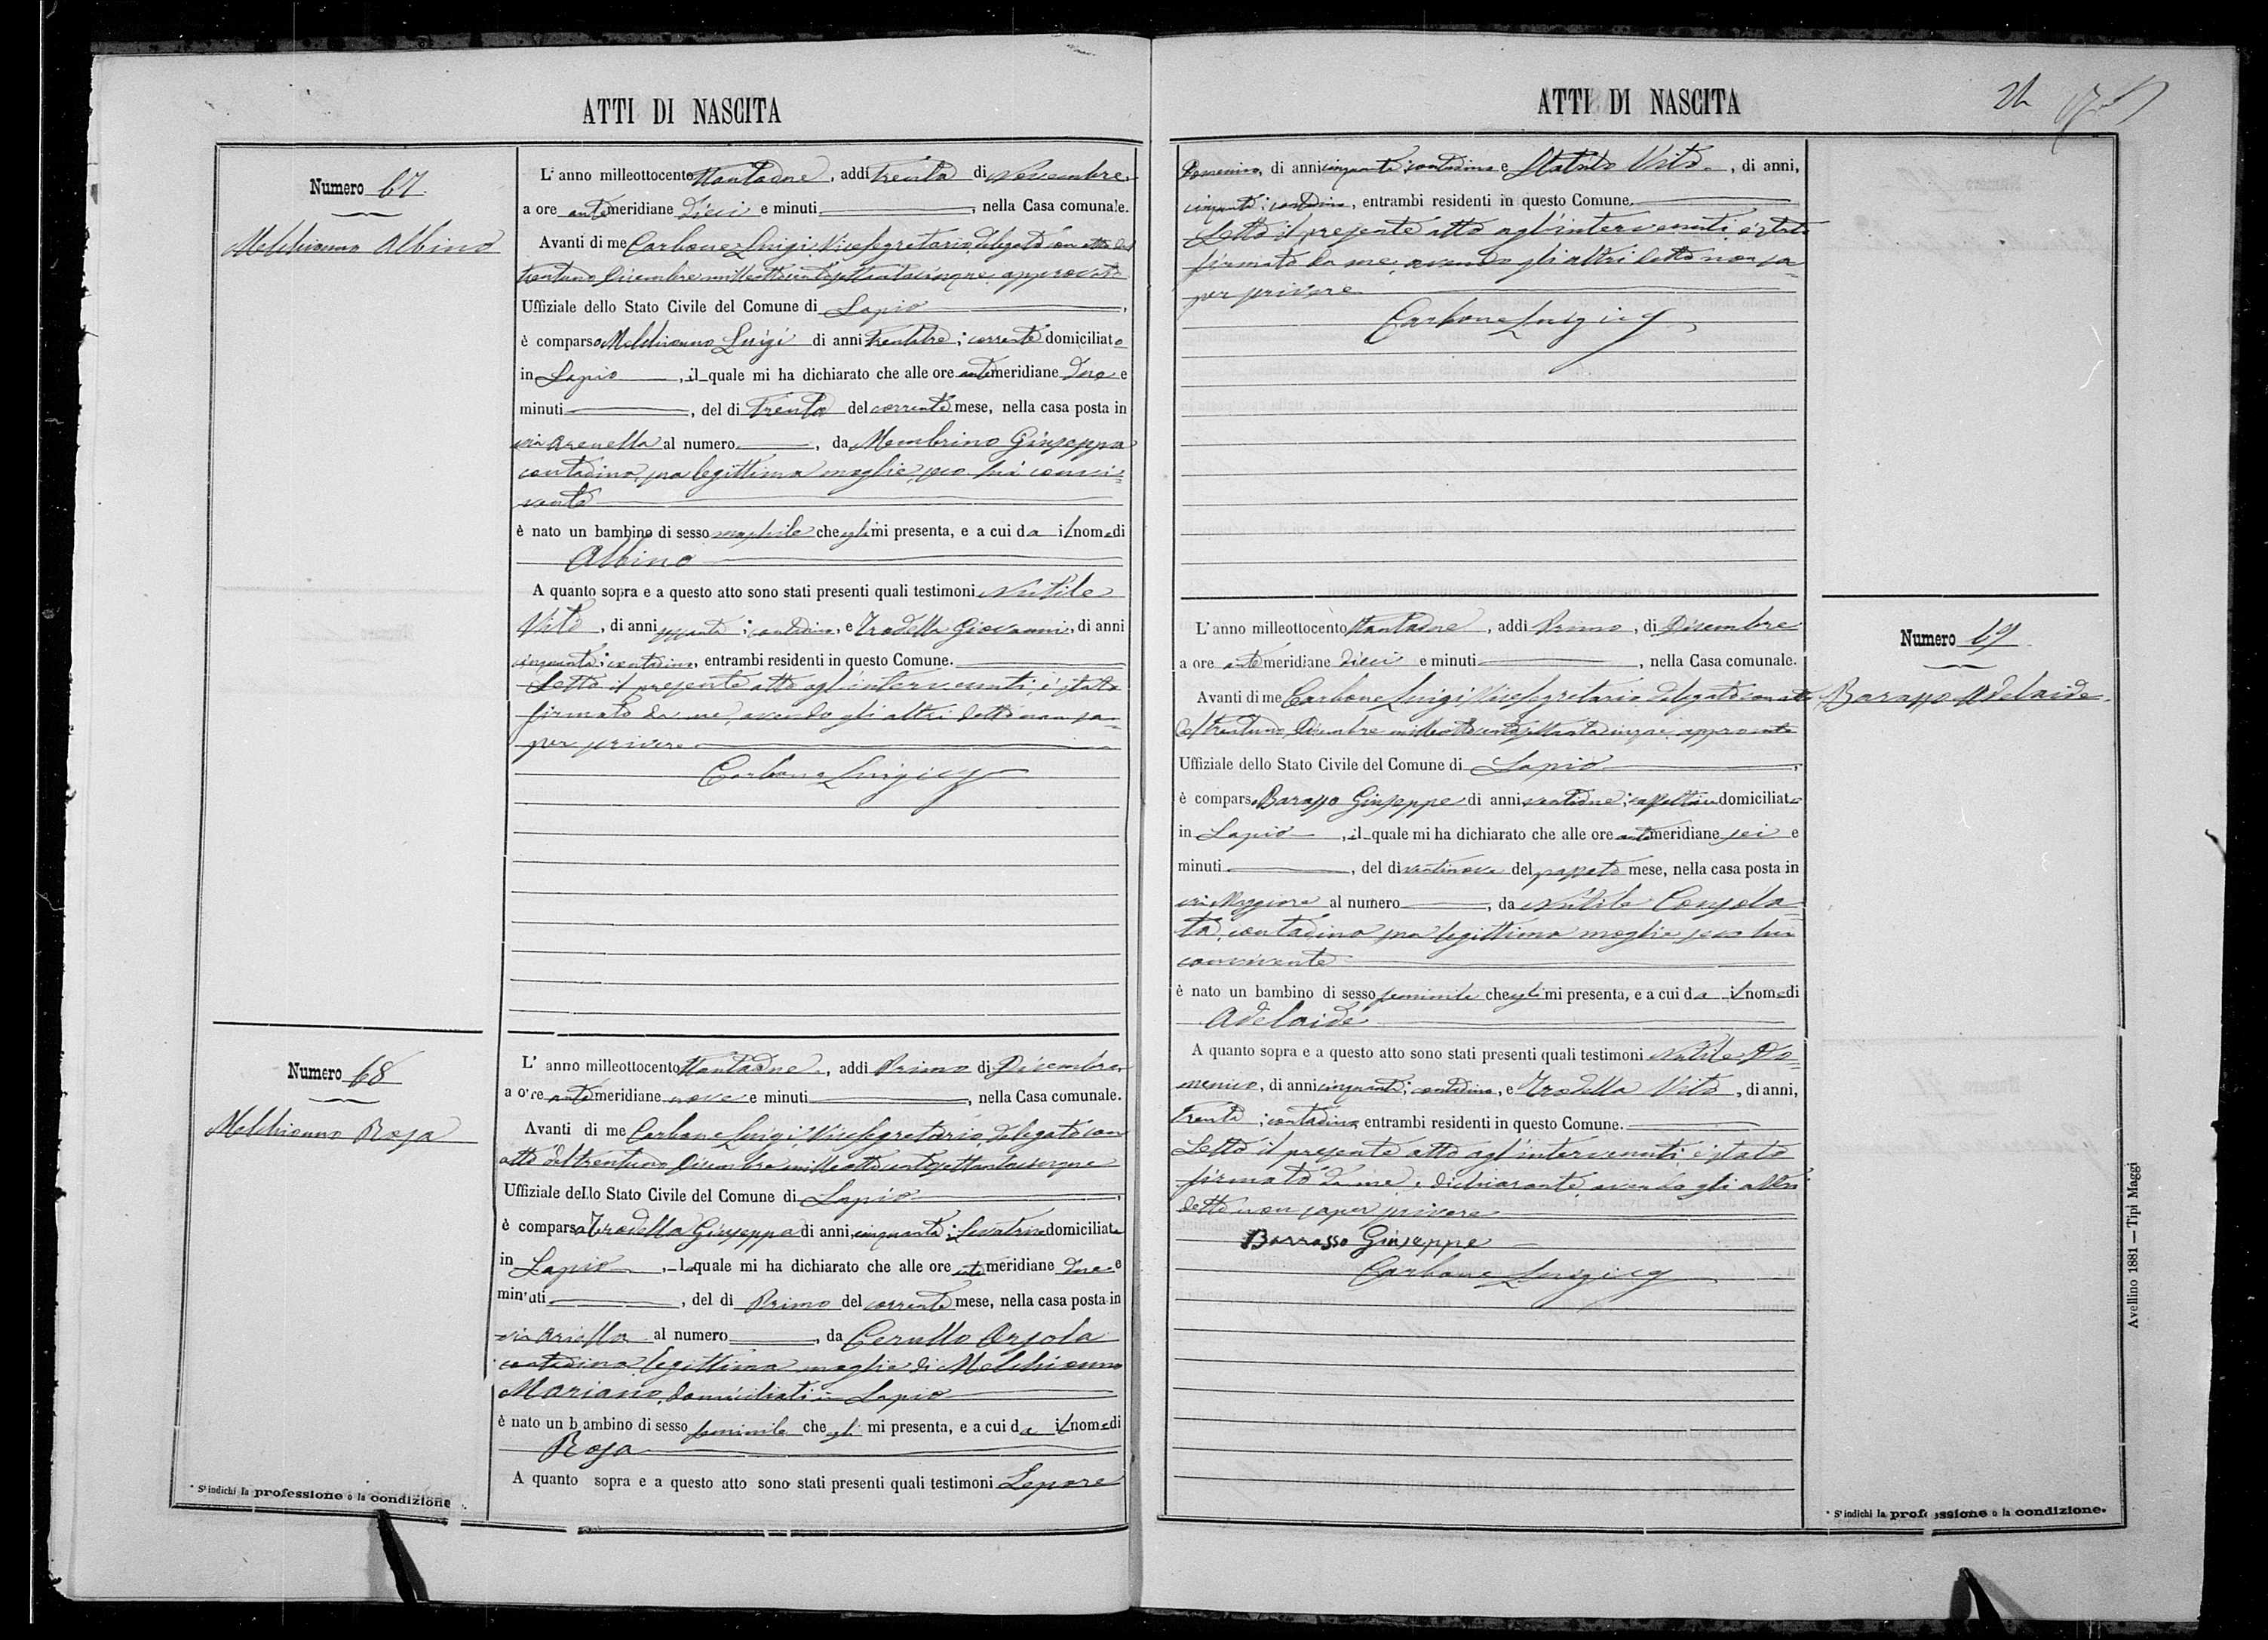 ATTI DI NASCITA
Numero 67
Melchionno Albino
L'anno milleottocentottantadue, addi trenta di Novembre,
a ore antemeridiane dieci e minuti , nella Casa comunale.
Avanti di me Carbone Luigi, Vicesegretario delegato con atto del
trentuno Dicembre milleottocentosettantacinque approvato
Uffiziale dello Stato Civile del Comune di Lapio ,
è comparso Melchionno Luigi di anni trentatre; domiciliato
in Lapio , il quale mi ha dichiarato che alle ore antemeridiane due e
minuti , del di trenta del corrente mese, nella casa posta in
via Arenella al numero , da Membrino Giuseppa
contadina, sua legittima moglie, seco lui convi=
vente
è nato un bambino di sesso maschile che egli mi presenta, e a cui da il nome di
Albino
A quanto sopra e a questo atto sono stati presenti quali testimoni Nutile
Vito, di anni sessanta; contadino, e Trodella Giovanni, di anni
cinquanta; contadino, entrambi residenti in questo Comune.
Letto il presente atto agl'intervenuti, è stato
firmato da me, avendo gli altri detto non sa=
per scrivere
Carbone Luigi
Numero 68
Melchionno Rosa
L'anno milleottocentottantadue, addi Primo di Dicembre,
a ore antemeridiane nove e minuti , nella Casa comunale.
Avanti di me Carbone Luigi, Vicesegretario, delegato con
atto del trentuno Dicembre milleottocentosettantacinque
Uffiziale dello Stato Civile del Comune di Lapio ,
è comparsa Trodella Giuseppa di anni cinquanta; Levatrice domiciliata
in Lapio , la quale mi ha dichiarato che alle ore antemeridiane due e
minuti , del di Primo del corrente mese, nella casa posta in
via Ariella al numero , da Cerullo Orsola
contadina legittima moglie di Melchionno
Mariano, domiciliati in Lapio
è nato un bambino di sesso feminile che egli mi presenta, e a cui da il nome di
Rosa
A quanto sopra e a questo atto sono stati presenti quali testimoni Lepore
* S'indichi la professione o la condizione.
ATTI DI NASCITA
Domenico, di anni cinquanta; contadino e Vito , di anni,
cinquanta; contadino, entrambi residenti in questo Comune.
Letto il presente atto agl'intervenuti, è stato
firmato da me, avendo gli altri detto non sa=
per scrivere
Carbone Luigi
Numero 69
Barasso Adelaide
L'anno milleottocentottantadue, addi Primo, di Dicembre
a ore antemeridiane dieci e minuti , nella Casa comunale.
Avanti di me Carbone Luigi Vicesegretario delegato con atto
del trentuno Dicembre milleottocentosettantacinque approvato
Uffiziale dello Stato Civile del Comune di Lapio ,
è comparso Barasso Giuseppe di anni ventidue; domiciliato
in Lapio , il quale mi ha dichiarato che alle ore antemeridiane sei e
minuti , del di ventinove del passato mese, nella casa posta in
via Maggiore al numero , da Nutile Consola=
ta, contadina sua legittima moglie seco lui
convivente
è nato un bambino di sesso feminile che egli mi presenta, e a cui da il nome di
Adelaide
A quanto sopra e a questo atto sono stati presenti quali testimoni Nutile Do=
menico, di anni cinquanta; contadino, e Trodella Vito , di anni,
trenta ; contadino, entrambi residenti in questo Comune.
Letto il presente atto agl'intervenuti è stato
firmato da me, e dichiarante, avendo gli altri
detto non saper scrivere
Barrasso Giuseppe
Carbone Luigi
* S'indichi la professione o la condizione.
Avellino 1881 — Tipi Maggi